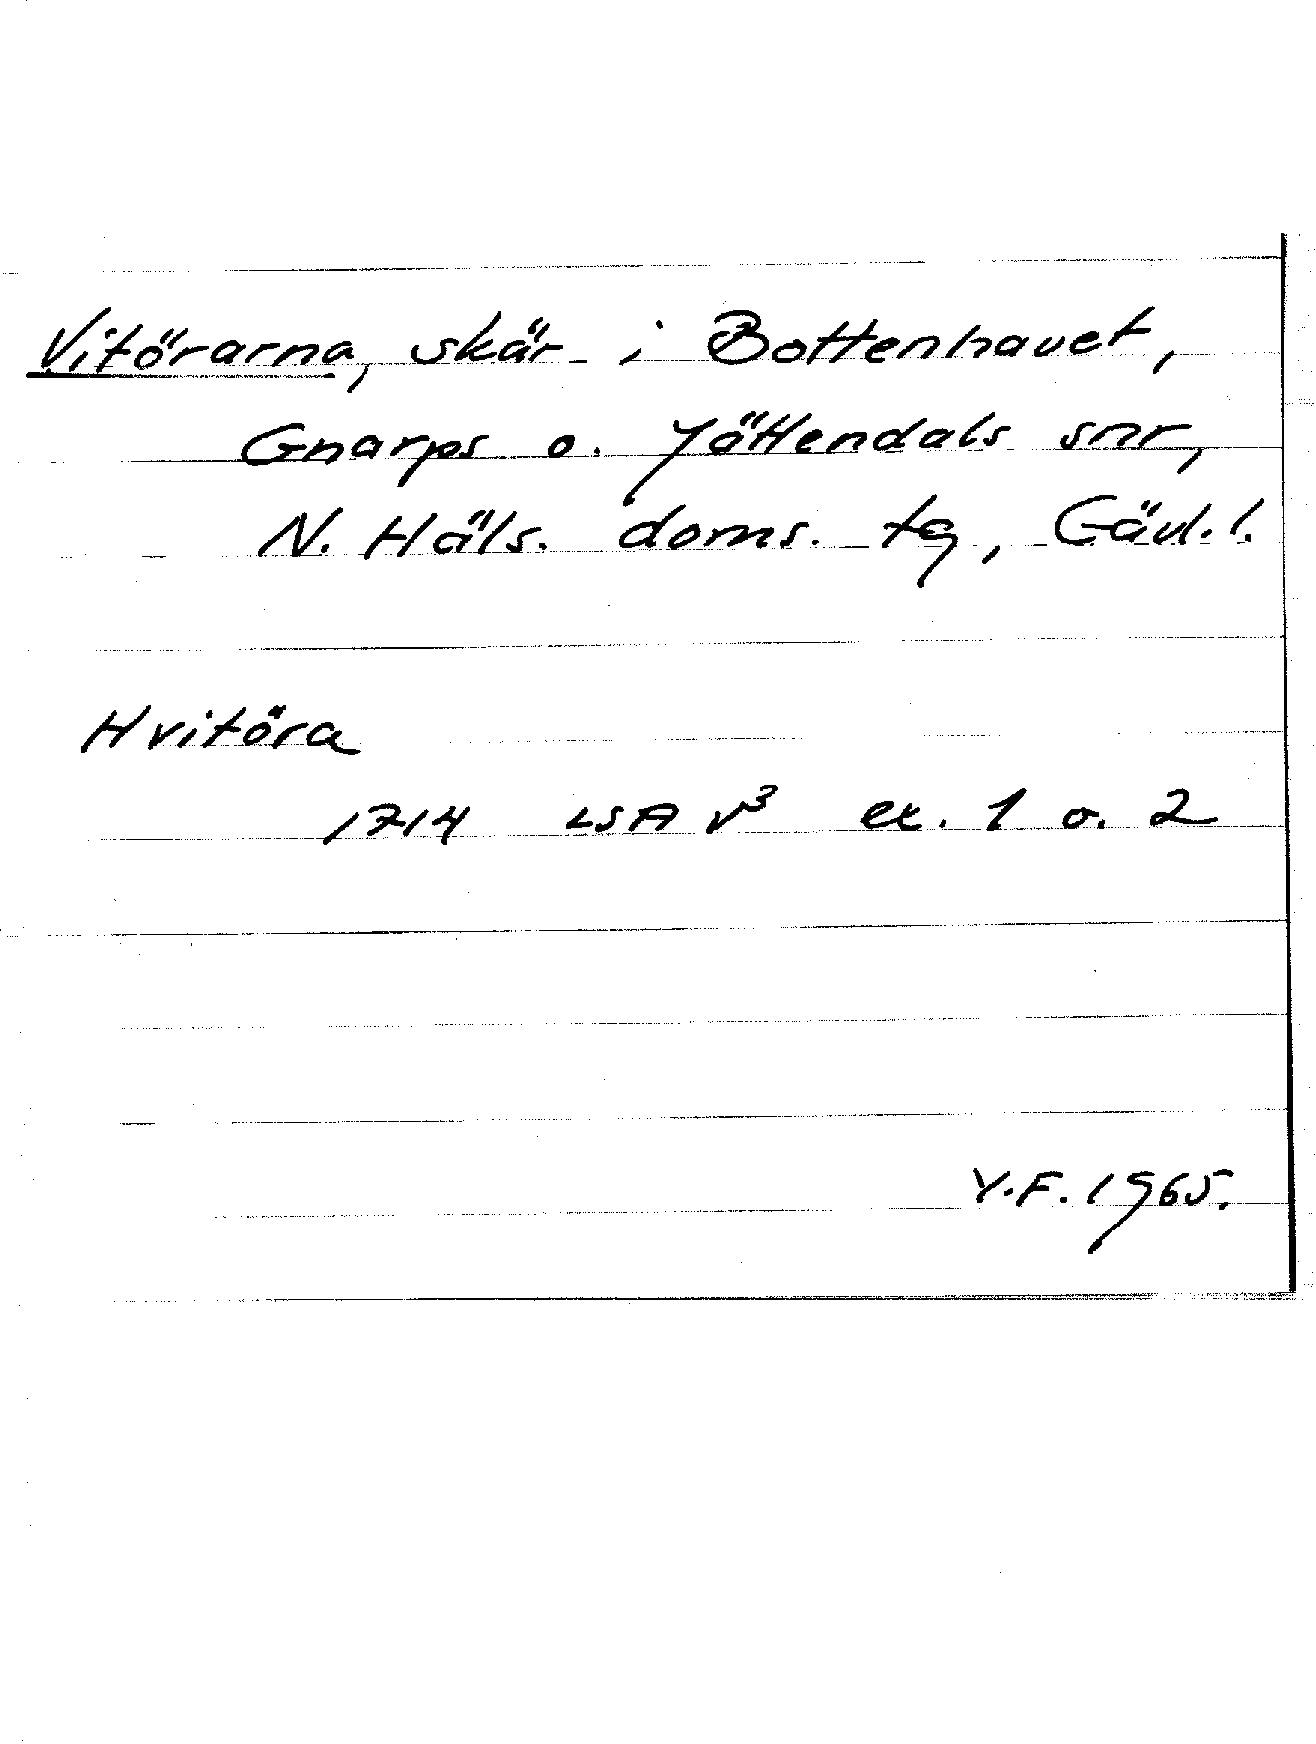 Vitörarna, skär i Bottenhavet,
Gnarps o. Jättendals snr,
N. Häls. doms. tg, Gävl. l.
Hvitöra
1714 LSA V³ ex. 1 o. 2
Y.F. 1965.